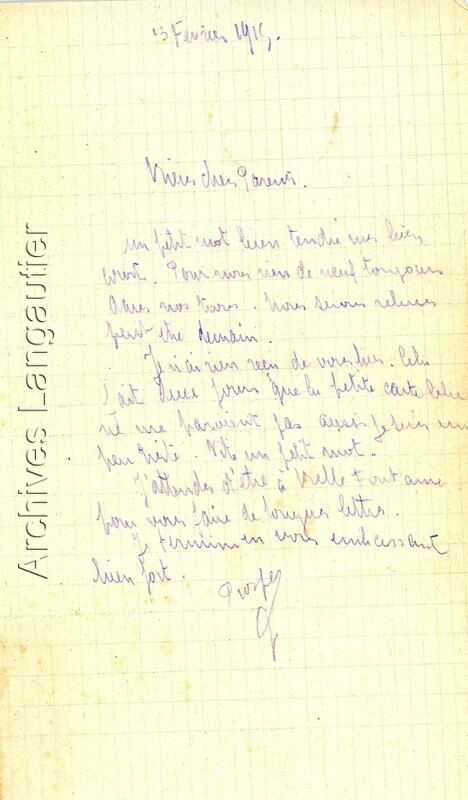 13 Février 1915.
chers Parents.
un petit mot bien tendre mais bien
court. Pour nous rien de neuf toujours
dans nos trous. Nous serons relevés
peut-être demain.
Je n'ai rien reçu de vous hier. Cela
fait deux jours que la petite carte
ne me parvient pas aussi je suis un
peu triste. Vite un petit mot.
J'attends d'être à Belle Fontaine
pour vous faire de longues lettres.
Je termine en vous embrassant
bien fort.
Prosper
Archives Langautier